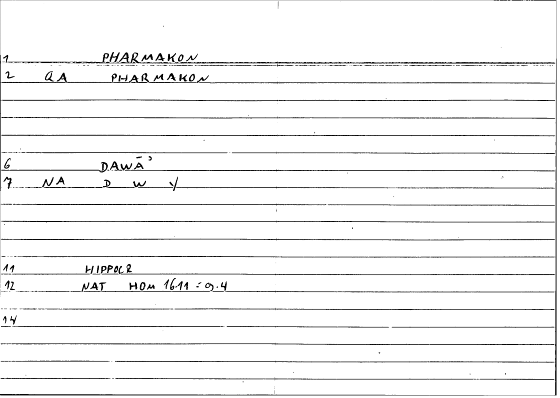 1 PHARMAKON
2 QA PHARMAKON
6 DAWĀʾ
7 NA D W Y
11 HIPPOCR
12 NAT HOM 1611 = 9.4
14